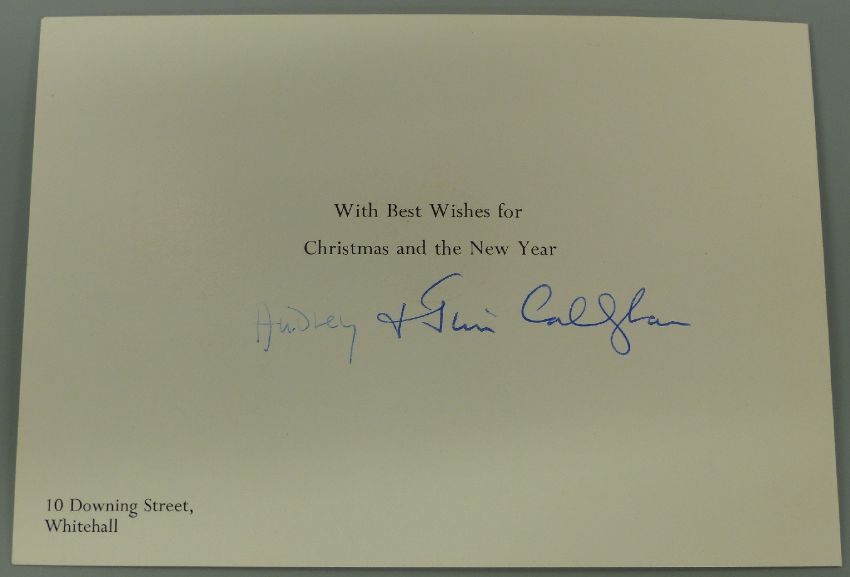 With Best Wishes for
Christmas and the New Year
Audrey & Jim Callaghan
10 Downing Street,
Whitehall